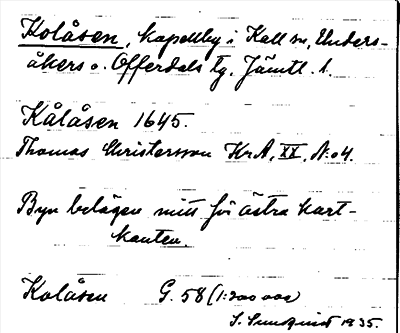 Kolåsen, kapellby i Kall sn, Unders-
åkers o. Offerdals tg. Jämtl. l.
Kålåsen 1645.
Thomas Christersson KrA, XX, N:o 4.
Byn belägen mitt för östra kart-
kanten.
Kolåsen G. 58 (1:200 000)
S. Sundquist 1935.